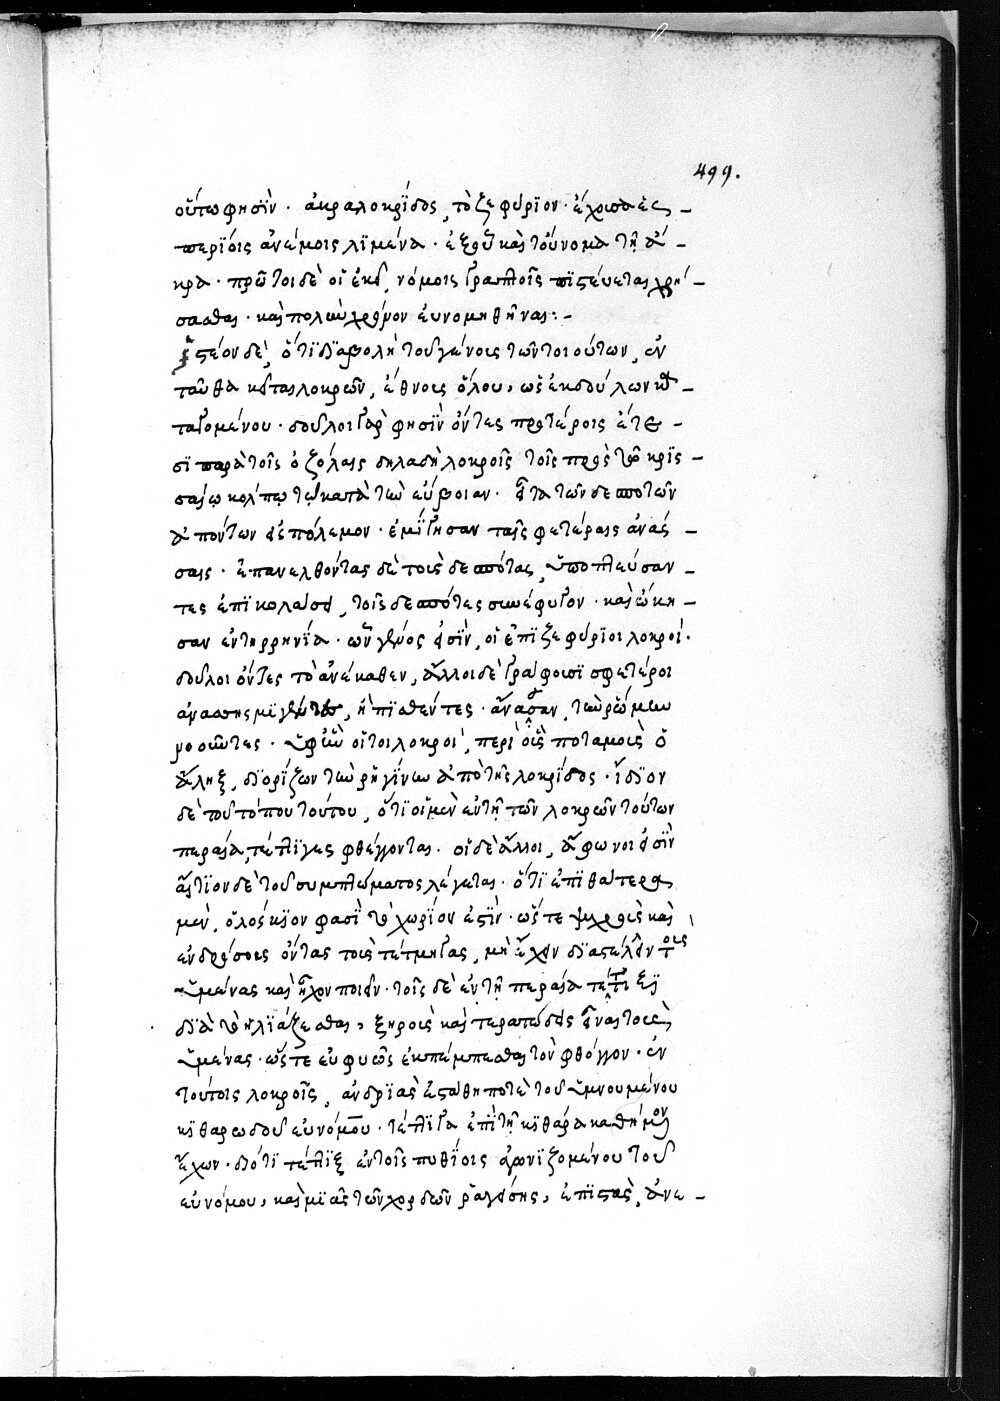 499.
οὕτω φησὶν· ἄκρα λοκρΐδος, τὸ ζεφύρϊον· ἔχουσα ἑς-
περίοις ἀνέμοις λϊμένα· ἐξ οὗ καὶ τοὔνομα τῇ ἄ-
κρα· πρῶτοι δὲ οἱ ἐκεῖ, νόμοις γραπτοῖς πϊστεύεται χρή-
σασθαι· καὶ πολὺν χρόνον εὐνομηθῆναι:-
ἰστέον δὲ, ὅτϊ διαβολὴ τοῦ γένους τῶν τοιούτων, ἐν
ταῦθα κεῖται λοκρῶν, ἔθνους ὅλου, ὡς ἐκ δούλων κα-
ταγομένου· δοῦλοι γάρ φησϊν ὄντες προτέροις ἔτε-
σϊ παρὰ τοῖς ὀζόλαις δηλαδὴ λοκροῖς τοῖς πρὸς τῶ κρϊς-
σαίω κόλπω τῶ κατὰ τὴν εὔβοιαν· εἶτα τῶν δεσποτῶν
ἀπόντων εἰς πόλεμον· ἐμίγησαν ταῖς σφετέραις ἀνάς-
σαις· ἐπανελθόντας δὲ τοὺς δεσπότας, ὑποπλεύσαν-
τες ἐπϊκολαίσα, τοῖς δεσπότες συνέφυγον· καὶ ὤκη-
σαν ἐν τηρρηνία· ὧν γένος εἰσϊν, οἱ ἐπϊζεφύρϊοι λοκροί·
δοῦλοι ὄντες τὸ ἀνέκαθεν, ἄλλοι δὲ γράφουσϊ σφετέροι
ἀνάσσης μϊγέντες, ἢ πϊαθέντες· ἄνασσαν, τὴν ῥώμην
νοοῦντες· ὑφ' ὧν οἵτοι λοκροὶ, περὶ οὓς ποταμοὺς ὁ
ἄληξ, δϊορίζων τὴν ῥηγίνων ἀπὸ τῆς λοκρίδος· ἴδϊον
δὲ τοῦ τόπου τούτου, ὅτϊ οἱ μὲν ἐν τῇ τῶν λοκρῶν τούτων
περαία, τέττϊγες φθέγγονται· οἱ δὲ ἄλλοι, ἄφωνοι εἰσϊν
αἴτϊον δὲ τοῦ συμπτώματος λέγεται· ὅτϊ ἐπϊ θάτερα
μὲν, ὁλόσκϊον φασὶ τὸ χωρίον ἐστϊν· ὥστε ψυχροὺς καὶ
ἐνδρόσους ὄντας τοὺς τέττϊγας, μὴ ἔχειν δϊαστέλλειν τοὺς
ὑμένας καὶ ἦχον ποιεῖν· τοῖς δὲ ἐν τῇ περαία τέττϊξϊ
δϊὰ τὸ ἡλϊάζεσθαι, ξηροὺς καὶ κερατώδεις εἶναι τοὺς
ὑμένας· ὥστε εὐφυῶς ἐκπέμπεσθαι τὸν φθόγγον· ἐν
τούτοις λοκροῖς, ἀνδρϊὰς ἔστάθη ποτὲ τοῦ ὑμνουμένου
κϊθαρωδοῦ εὐνόμου· τέττϊγα ἐπὶ τῇ κϊθάρα καθήμενον
ἔχων· διότϊ τέττϊξ ἐν τοῖς πυθίοις ἀγωνϊζομένου τοῦ
εὐνόμου, καὶ μϊᾶς τῶν χορδῶν ῥαγείσης, ἐπϊστὰς, ἀνε-